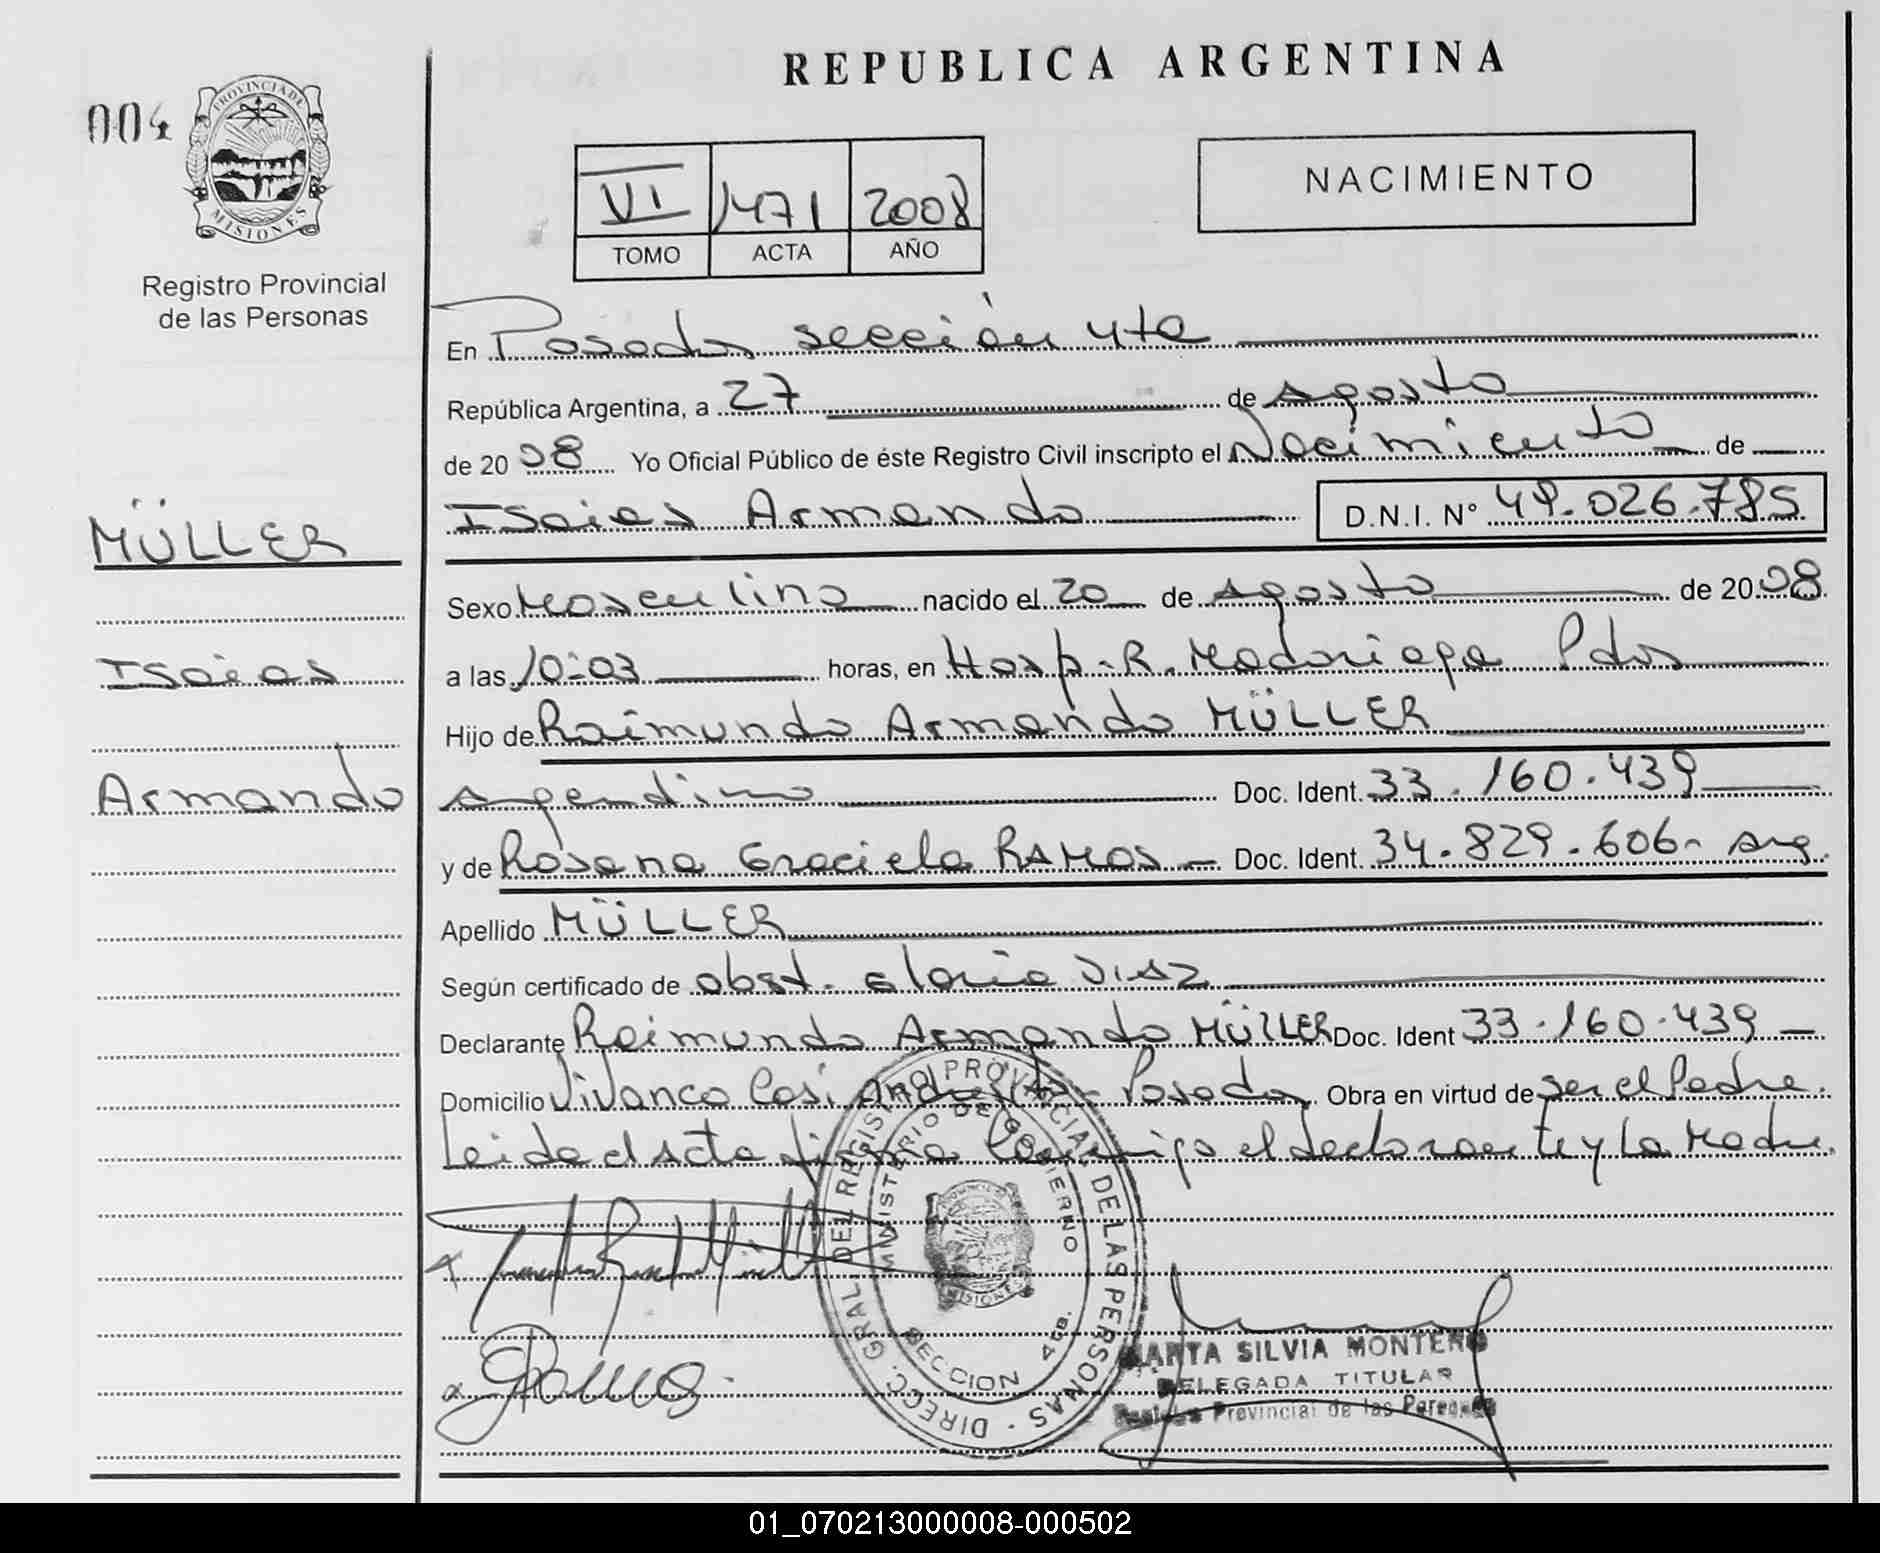 REPUBLICA ARGENTINA
004
PROVINCIA DE
MISIONES
Registro Provincial
de las Personas
VI 1471 2008
TOMO ACTA AÑO
NACIMIENTO
En Posadas sección 4ta
República Argentina, a 27 de Agosto
de 2008 Yo Oficial Público de éste Registro Civil inscripto el Nacimiento de
Isaias Armando D.N.I. N° 49.026.785
MÜLLER
Isaias
Armando
Sexo Masculino nacido el 20 de Agosto de 2008
a las 10:03 horas, en Hosp. R. Madariaga Pdas
Hijo de Raimundo Armando MÜLLER
Argentino Doc. Ident. 33.160.439
y de Rosana Graciela RAMOS Doc. Ident. 34.829.606- Arg.
Apellido MÜLLER
Según certificado de obst. Gloria DIAZ
Declarante Raimundo Armando MÜLLER Doc. Ident 33.160.439
Domicilio Vivanco Posadas Obra en virtud de ser el Padre.
Leida el Acta firma Conmigo el declarante y la Madre.
DIREC. GRAL. DEL REGISTRO PROVINCIAL DE LAS PERSONAS
MINISTERIO DE GOBIERNO
MISIONES
SECCION 4ta.
MARTA SILVIA MONTERO
DELEGADA TITULAR
Registro Provincial de las Personas
01_070213000008-000502